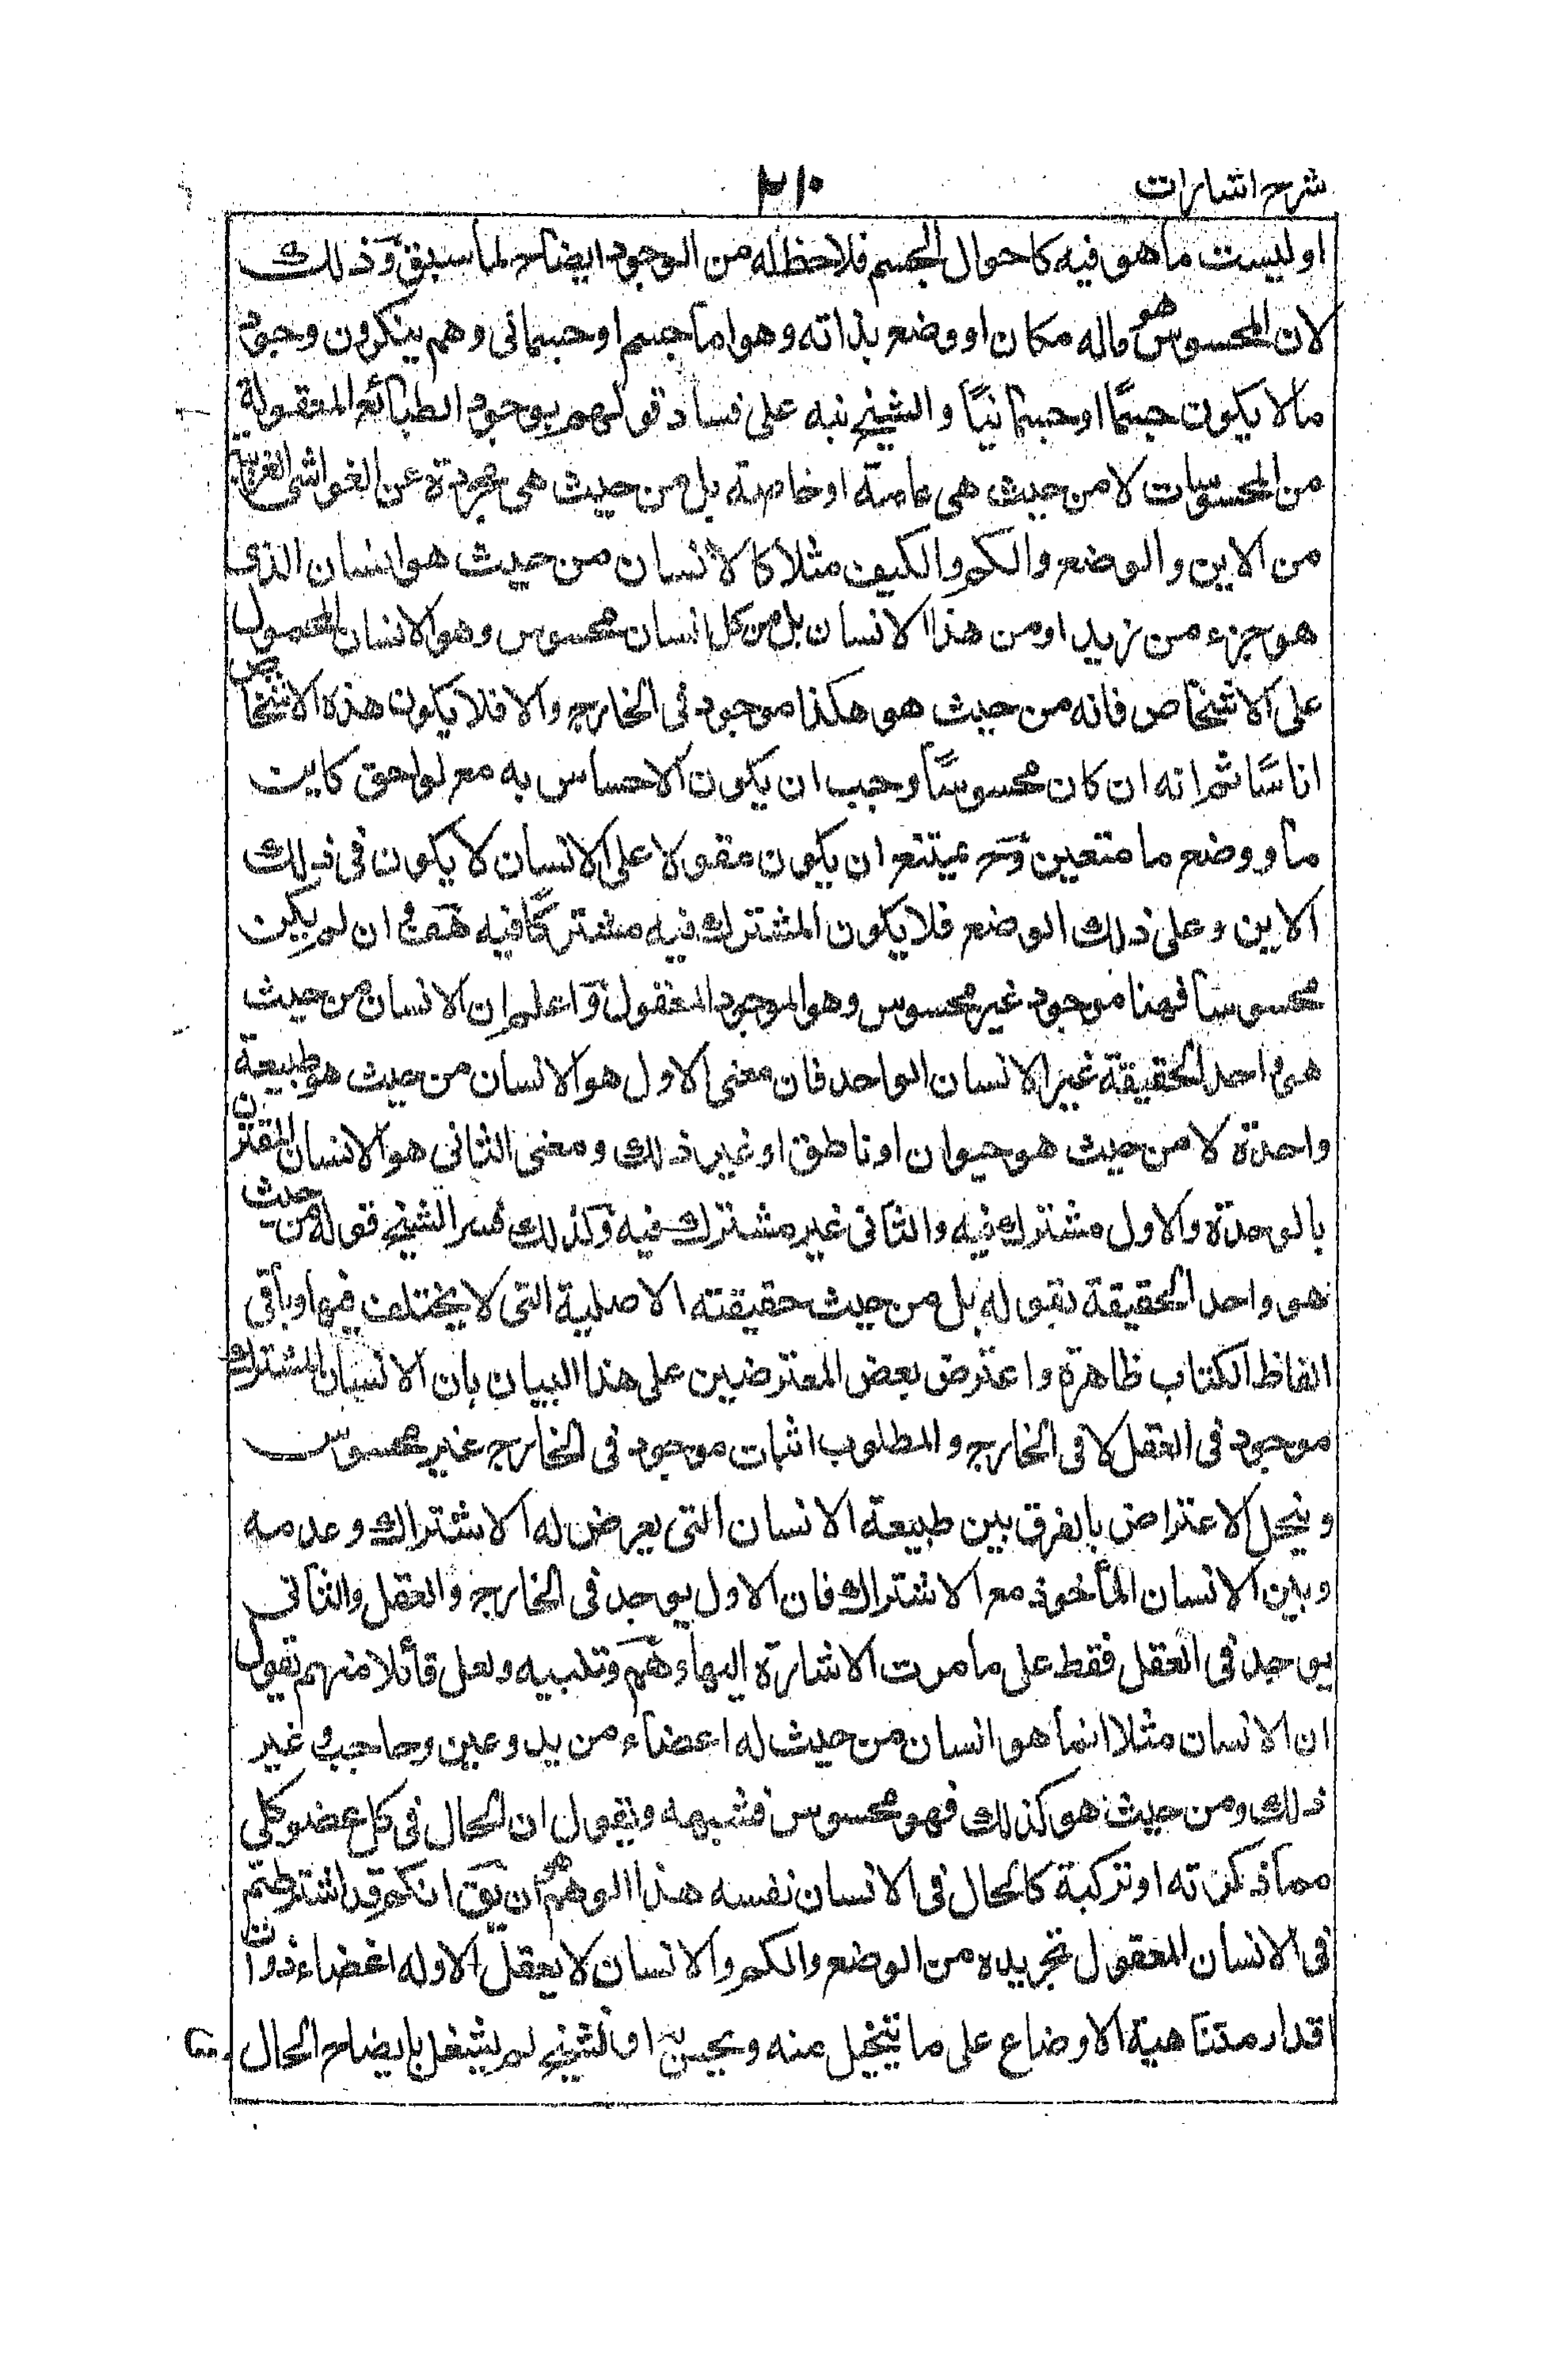 شرح اشارات
٢١٠
او ليست ما هو فيه كاحوال الجسم فلا حظ له من الوجود ايضاح لما سبق وذلك
لان المحسوس هو ماله مكان او وضع بذاته وهو اما جسم او جسمانى وهم ينكرون وجود
ما لا يكون جسمًا او جسمانيًا والشيخ نبه على فساد قولهم بوجود الطبائع المعقولة
من المحسوسات لا من حيث هى عامة او خاصة بل من حيث هى مجردة عن الغواشى الغريبة
من الاين والوضع والكم والكيف مثلا كالانسان من حيث هو انسان الذى
هو جزء من زيد او من هذا الانسان بل من كل انسان محسوس وهو الانسان المحمول
على الاشخاص فانه من حيث هو هكذا موجود فى الخارج والا فلا يكون هذه الاشخاص
اناسًا ثم انه ان كان محسوسًا وجب ان يكون الاحساس به مع لواحق كاين
ما ووضع ما متعين وح يمتنع ان يكون مقولا على الانسان لا يكون فى ذلك
الاين وعلى ذلك الوضع فلا يكون المشترك فيه مشتركًا فيه هف ان لم يكن
محسوسا فهنا موجود غير محسوس وهو الموجود المعقول واعلم ان الانسان من حيث
هو واحد الحقيقة غير الانسان الواحد فان معنى الاول هو الانسان من حيث هو طبيعة
واحدة لا من حيث هو حيوان او ناطق او غير ذلك ومعنى الثانى هو الانسان المقترن
بالوحدة والاول مشترك فيه والثانى غير مشترك فيه وكذلك فسر الشيخ قوله من حيث
هو واحد الحقيقة بقوله بل من حيث حقيقته الاصلية التى لا يختلف فيها وباقى
الفاظ الكتاب ظاهرة واعترض بعض المعترضين على هذا البيان بان الانسان المشترك
موجود فى العقل لا فى الخارج والمطلوب اثبات موجود فى الخارج غير محسوس
وينحل الاعتراض بالفرق بين طبيعة الانسان التى يعرض له الاشتراك وعدمه
وبين الانسان المأخوذ مع الاشتراك فان الاول يوجد فى الخارج والعقل والثانى
يوجد فى العقل فقط على ما مرت الاشارة اليها وهم وتنبيه ولعل قائلا منهم يقول
ان الانسان مثلا انما هو انسان من حيث له اعضاء من يد وعين وحاجب وغير
ذلك ومن حيث هو كذلك فهو محسوس فنبهه ونقول ان الحال فى كل عضو كلى
مما ذكرته او تركبة كالحال فى الانسان نفسه هذا الوهم هو ان يق انكم قد اشترطتم
فى الانسان المعقول تجريده من الوضع والكم والانسان لا يعقل الا وله اعضاء ذوات
اقدار متناهية الاوضاع على ما يتخيل منه ويحس به والشيخ لم يشغل بايضاح الحال